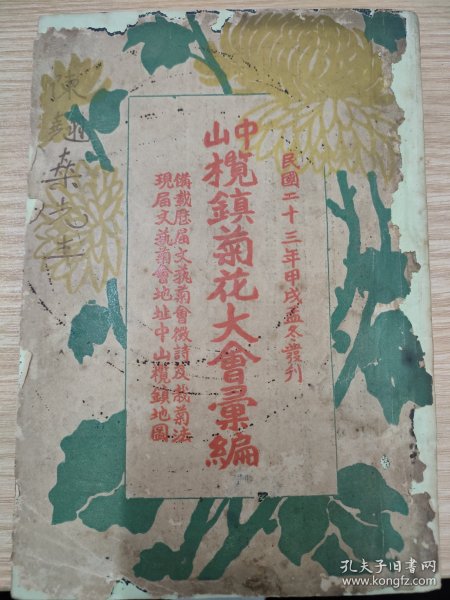 民國二十三年甲戌孟冬發刊
中山
欖鎮菊花大會彙編
備載歷屆文藝菊會徵詩及栽菊法
現屆文藝菊會地址中山欖鎮地圖
陳
先生
孔夫子旧书网
www.kongfz.com